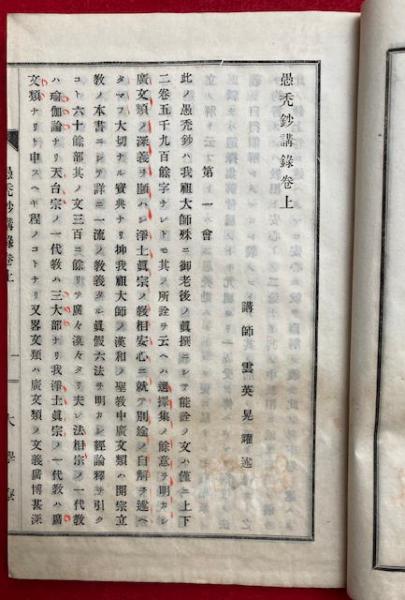 愚禿鈔講錄卷上
講師 雲英晃耀述
第一會
此ノ愚禿鈔ハ我顯大師殊ニ御老後ノ眞撰ニシテ能詮ノ文ハ僅ニ上下
二卷五千九百餘字ナレトモ其ノ所詮ヲ云ヘハ選擇集ノ餘意ヲ明カシ
廣文類ノ深義ヲ顯ハシ淨土眞宗ノ敎相安心ニ就テ別途ノ自解ヲ述ヘ
タマフ大切ナル寶典ナリ抑我顯大師ノ漢和ノ聖敎中廣文類ハ開宗立
敎ノ本書ニシテ詳ニ一流ノ敎義タル眞假六法ヲ明カシ經論釋ヲ引ク
コト六十餘部其ノ文三百ニ餘リテ廣々漠々タリ夫レ法相宗ノ一代敎
ハ瑜伽論ナリ天台宗ノ一代敎ハ三大部ナリ我淨土眞宗ノ一代敎ハ廣
文類ナリト申スヘキ程ノコトナリ又畧文類ハ廣文類ノ文義廣博甚深
愚禿鈔講錄卷上
一
大學寮